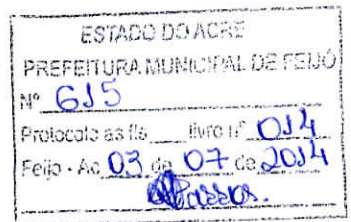 ESTADO DO ACRE
PREFEITURA MUNICIPAL DE FEIJÓ
Nº 615
Protocolo as fls ____ livro nº 014
Feijo - Ac 03 de 07 de 2014